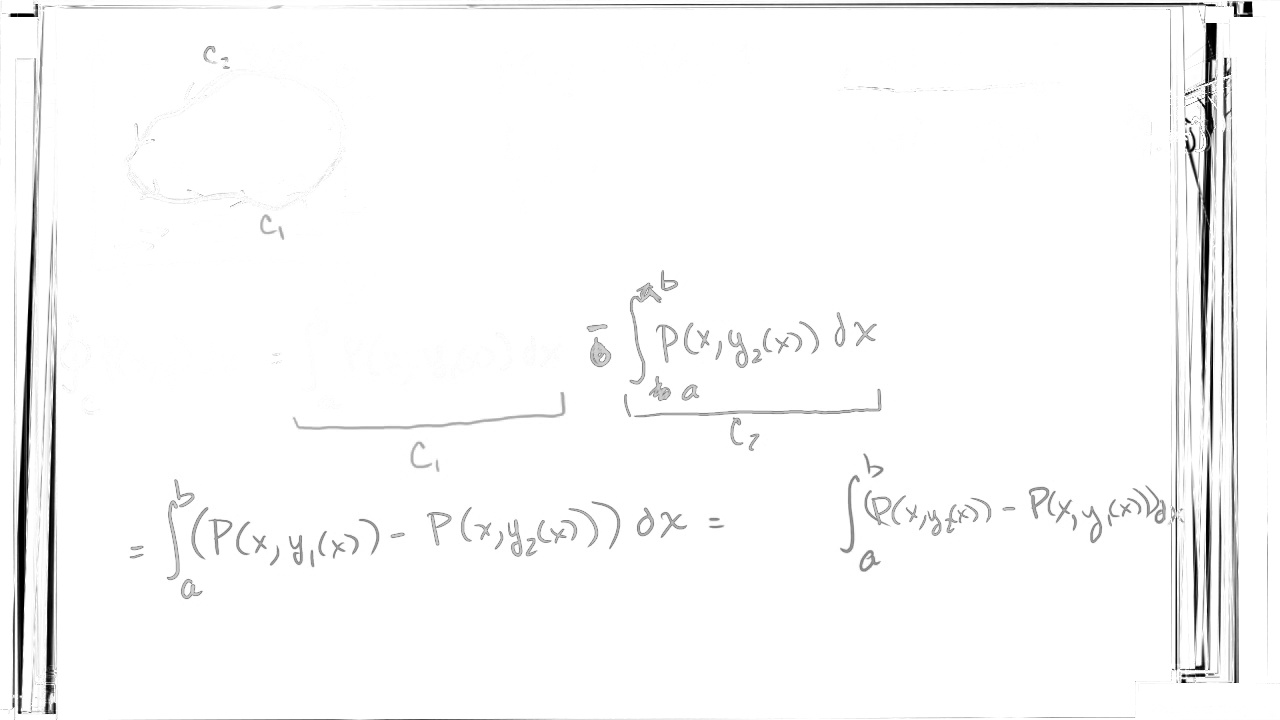 C₂
C₁
= dx - ∫ₐᵇ P(x, y₂(x)) dx
C₁ C₂
= ∫ₐᵇ (P(x, y₁(x)) - P(x, y₂(x))) dx = ∫ₐᵇ (P(x, y₂(x)) - P(x, y₁(x))) dx